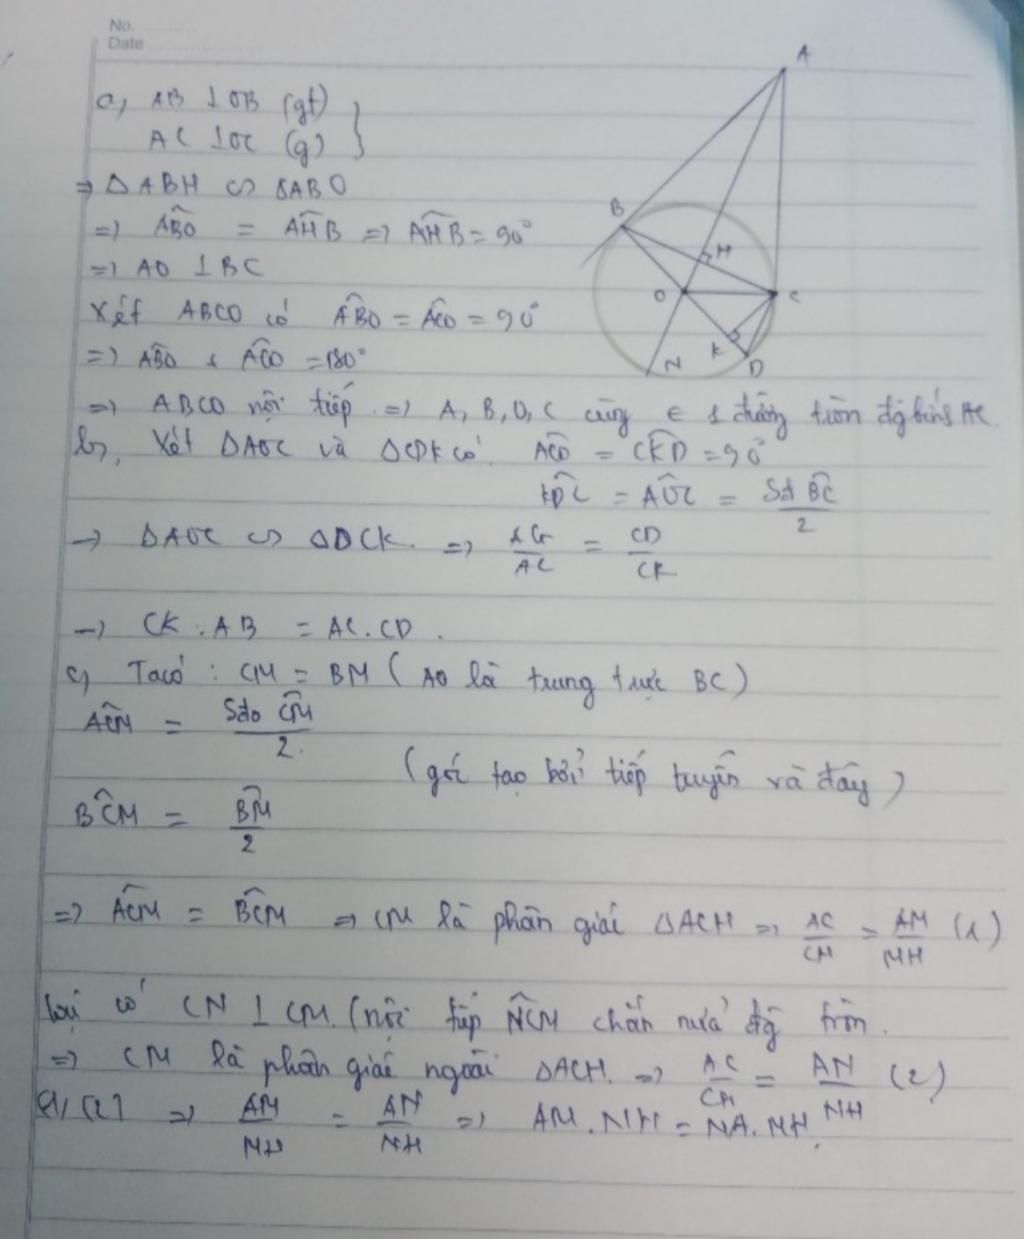 No.
Date
A
a, AB ⊥ OB (gt)
AC ⊥ OC (g)
⇒ ΔABH ∽ ΔABO
B
⇒ ABO^ = AHB^ ⇒ AHB^ = 90°
H
⇒ AO ⊥ BC
O
C
Xét ABCO có ABO^ = ACO^ = 90°
K
D
N
⇒ ABO^ + ACO^ = 180°
⇒ ABCO nội tiếp ⇒ A, B, O, C cùng ∈ 1 đường tròn
b, Xét ΔAOC và ΔCDK có ACO^ = CKD^ = 90°
KDC^ = AOC^ = Sđ BC^ / 2
→ ΔAOC ∽ ΔDCK ⇒ / AC = CD / CK
→ CK . AB = AC . CD .
c, Ta có : CM = BM ( AO là trung trực BC )
ACM^ = Sđo CM^ / 2 .
( góc tạo bởi tiếp tuyến và dây )
BCM^ = BM^ / 2
⇒ ACM^ = BCM^ ⇒ CM là phân giác ΔACH ⇒ AC / CH = AM / MH (1)
Lại có CN ⊥ CM (nội tiếp NCM^ chắn nửa đg tròn .
⇒ CM là phân giác ngoài ΔACH. ⇒ AC / CH = AN / NH (2)
(1) (2) ⇒ AM / MH = AN / NH ⇒ AM . NH = NA . MH .